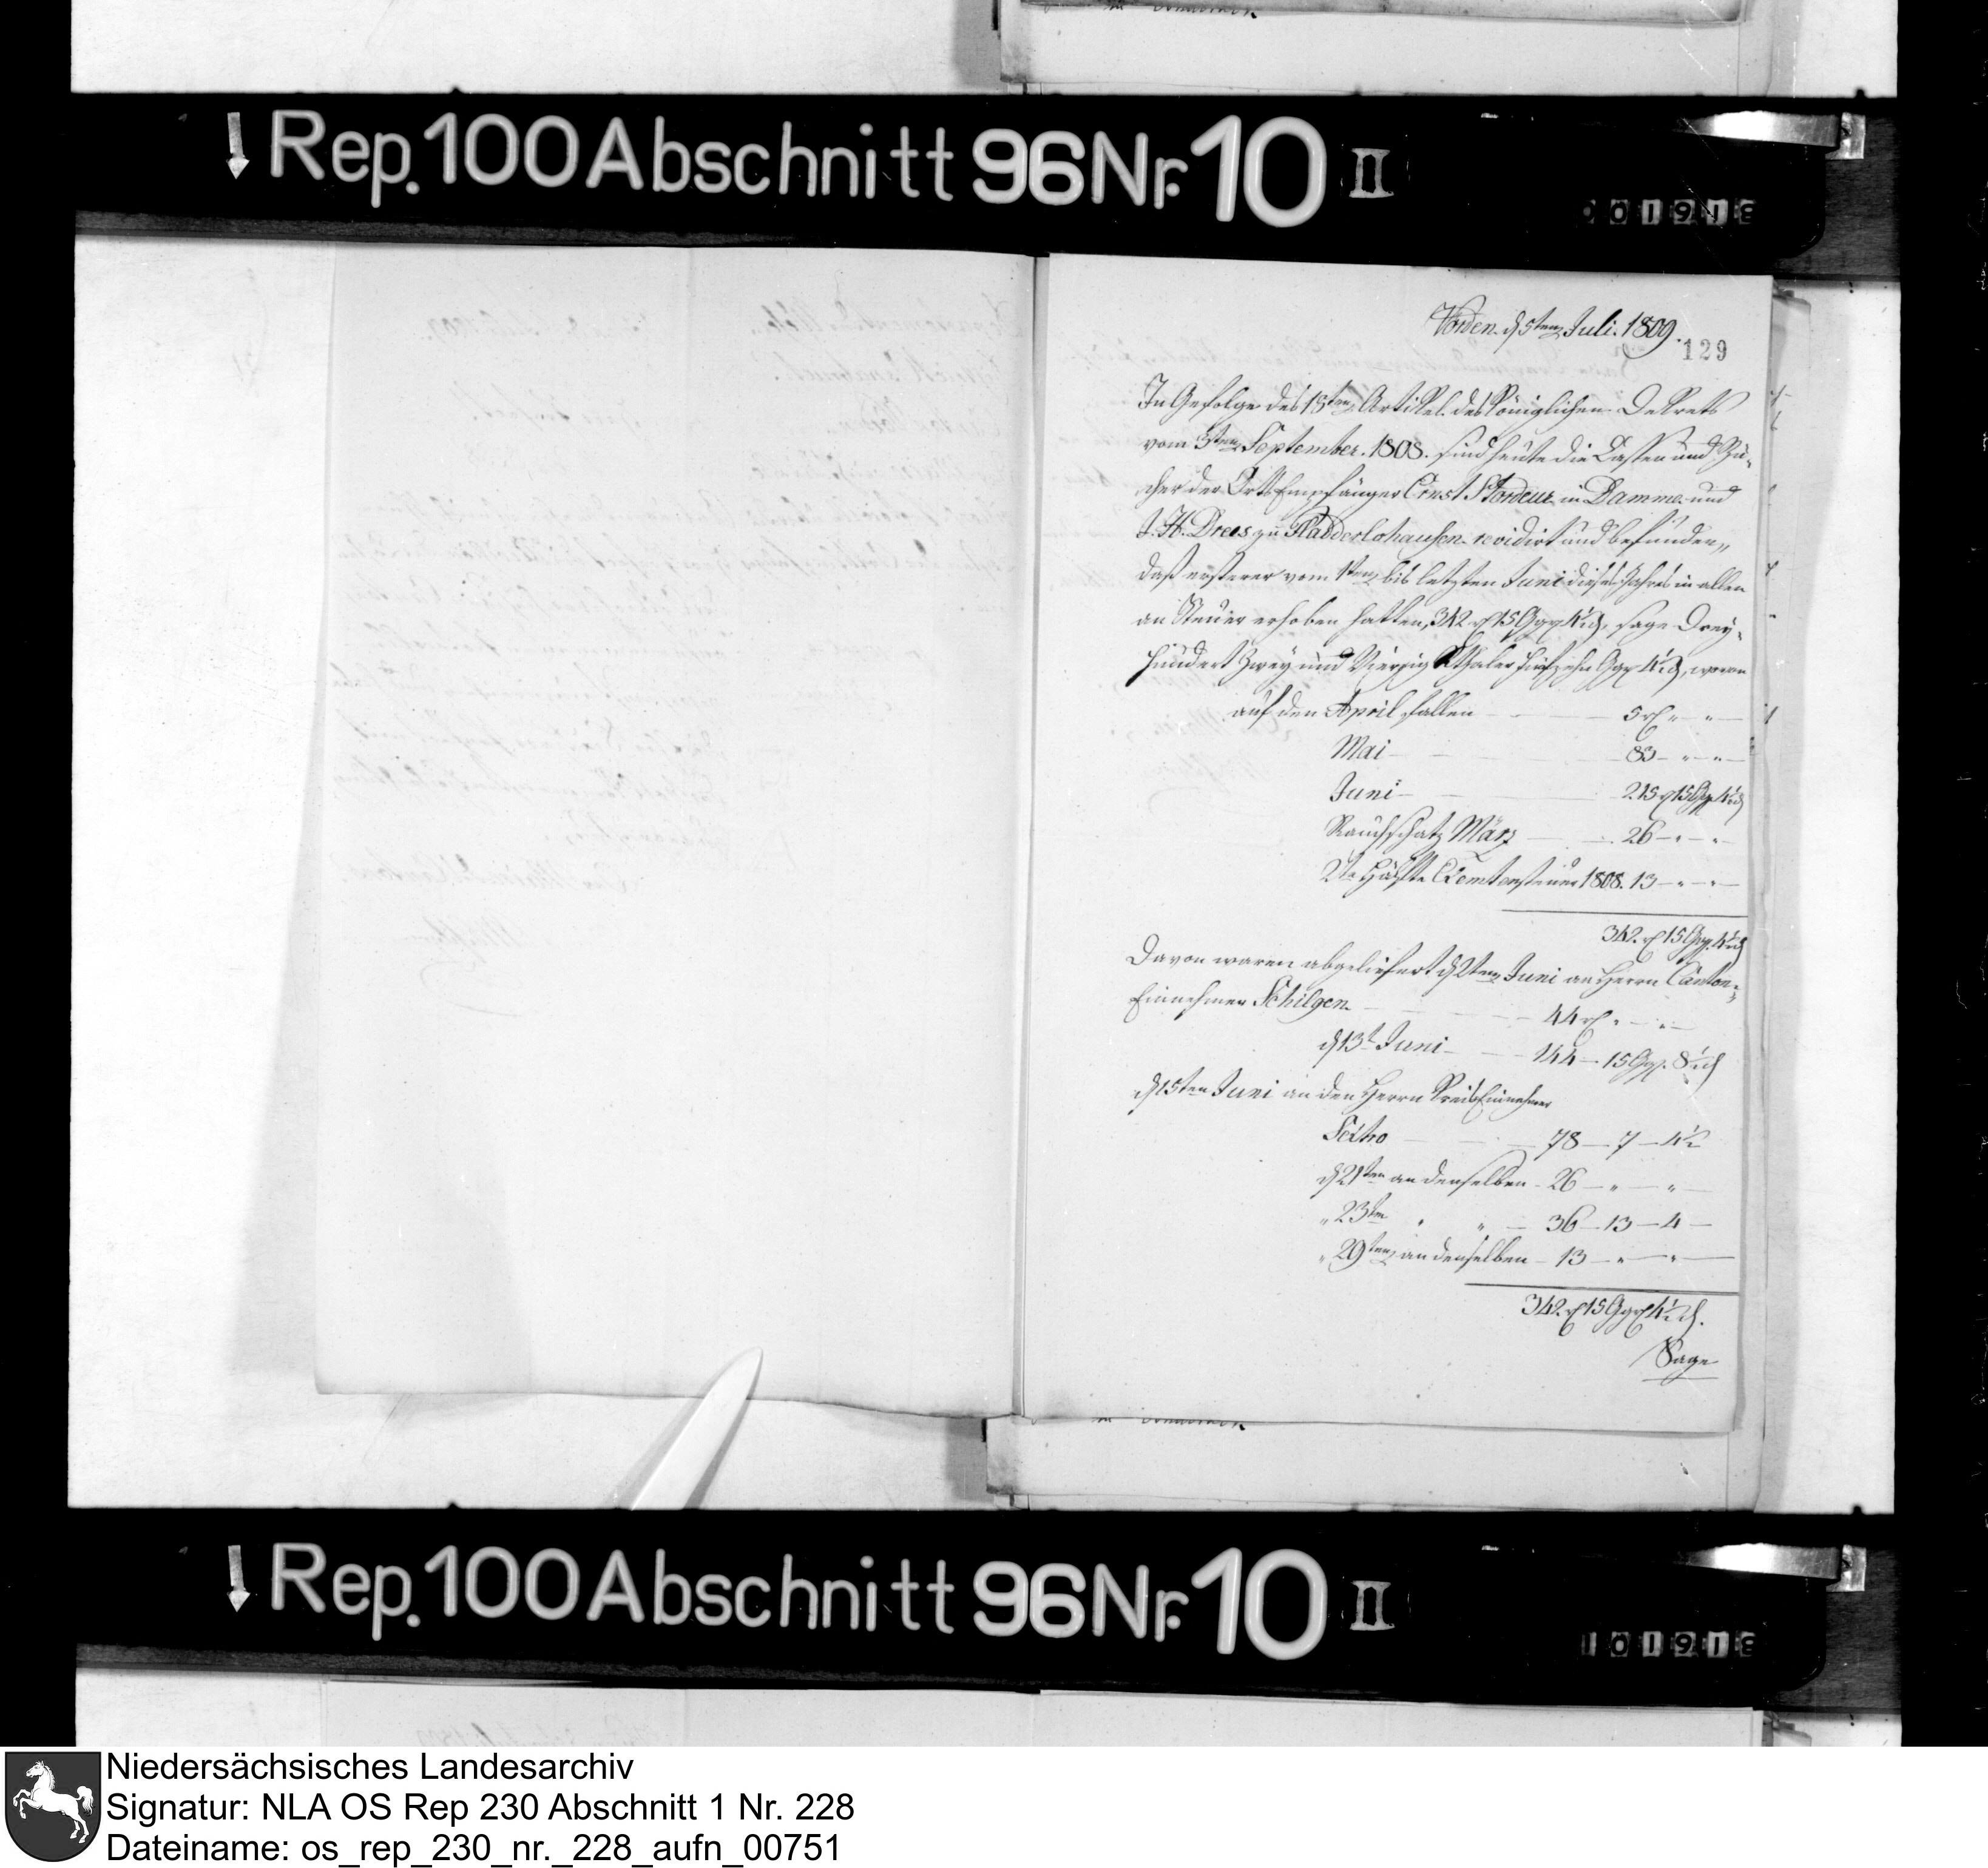 Rep. 100 Abschnitt 96 Nr. 10 II
001913
Vörden d 5ten Juli. 1809.
129
In Gefolge des 15ten Artikel des Königlichen Dekrets
vom 5ten September. 1808. sind heute die Cassen und Bü-
cher der Ortsempfänger Ernst Stordeur in Damme und
J. H. Drees zu Kladderlohausen revidirt und befunden,
daß ersterer vom 1ten bis letzten Juni dieses Jahres in allen
an Steuer erhoben hatten, 342 rl 15 Ggr 4½ d, sage Drey-
hundert zwey und Vierzig Rthaler funfzehn Ggr 4½ d, wovon
auf den April fallen — 5 rl " "
Mai — 83 — " — "
Juni — 215 rl 15 Ggr 4½ d
Rauchschatz März — 26 — " — "
2te Hälfte 1808. 13 — " — "
342. rl 15 Ggr. 4½ d
Davon waren abgeliefert d 2ten Juni an Herrn Canton-
Einnehmer Schilgen — 44 rl " — "
d 13t Juni — 144 — 15 Ggr. 8½ d
d 15ten Juni an den Herrn Kreis Einnehmer
— 78 — 7 — 4½
d 21ten an denselben — 26 — " — "
" 23ten " " — 36 — 13 — 4 —
" 29ten an denselben — 13 — " — "
342. rl 15 Ggr 4½ d.
Sage
Rep. 100 Abschnitt 96 Nr. 10 II
101913
Niedersächsisches Landesarchiv
Signatur: NLA OS Rep 230 Abschnitt 1 Nr. 228
Dateiname: os_rep_230_nr._228_aufn_00751